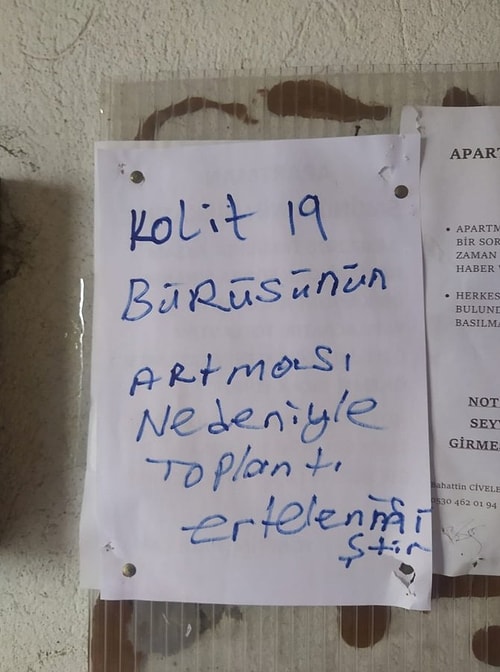 Kolit 19
BÜRÜSÜNÜN
ARtması
Nedeniyle
Toplantı
ertelenmi
ştir
APART
• APARTM
BİR SOR
ZAMAN
HABER
• HERKES
BULUND
BASILMA
NOT
SEY
GİRME
Bahattin CİVELE
0530 462 01 94